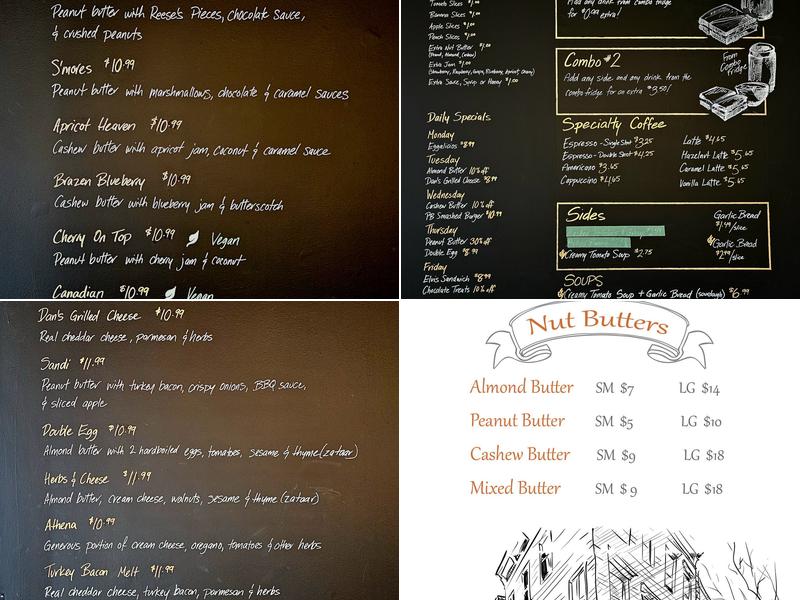 Peanut butter with Reese's Pieces, chocolate sauce,
& crushed peanuts
S'mores $10.99
Peanut butter with marshmallows, chocolate & caramel sauces
Apricot Heaven $10.99
Cashew butter with apricot jam, coconut & caramel sauce
Brazen Blueberry $10.99
Cashew butter with blueberry jam & butterscotch
Cherry On Top $10.99 Vegan
Peanut butter with cherry jam & coconut
Canadian $10.99 Vegan
Tomato Slices $1.00
Banana Slices $1.00
Apple Slices $1.00
Peach Slices $1.00
Extra Nut Butter $1.00
(Peanut, Almond, Cashew)
Extra Jam $1.00
(Strawberry, Raspberry, Grape, Blueberry, Apricot, Cherry)
Extra Sauce, Syrup or Honey $1.00
Daily Specials
Monday
Eggelicious $8.99
Tuesday
Almond Butter 10% off
Dan's Grilled Cheese $8.99
Wednesday
Cashew Butter 10% off
PB Smashed Burger $10.99
Thursday
Peanut Butter 30% off
Double Egg $8.99
Friday
Elvis Sandwich $8.99
Chocolate Treats 10% off
Add any drink from combo fridge
for $0.99 extra!
Combo #2
Add any side and any drink from the
combo fridge for an extra $3.50!
From
Combo
fridge
Specialty Coffee
Espresso - Single Shot $3.25
Espresso - Double Shot $4.25
Americano $3.65
Cappuccino $4.65
Latte $4.65
Hazelnut Latte $5.65
Caramel Latte $5.65
Vanilla Latte $5.65
Sides
Creamy Tomato Soup $2.75
Garlic Bread
$1.99/slice
Garlic Bread
$2.99/slice
SOUPS
Creamy Tomato Soup + Garlic Bread (sourdough) $6.99
Dan's Grilled Cheese $10.99
Real cheddar cheese, parmesan & herbs
Sandi $11.99
Peanut butter with turkey bacon, crispy onions, BBQ sauce,
& sliced apple
Double Egg $10.99
Almond butter with 2 hardboiled eggs, tomatoes, sesame & thyme (zataar)
Herbs & Cheese $11.99
Almond butter, cream cheese, walnuts, sesame & thyme (zataar)
Athena $10.99
Generous portion of cream cheese, oregano, tomatoes & other herbs
Turkey Bacon Melt $11.99
Real cheddar cheese, turkey bacon, parmesan & herbs
Nut Butters
Almond Butter SM $7 LG $14
Peanut Butter SM $5 LG $10
Cashew Butter SM $9 LG $18
Mixed Butter SM $ 9 LG $18